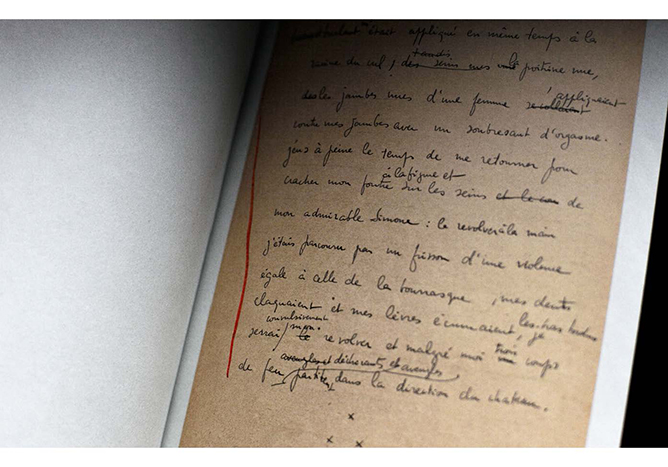 était appliqué en même temps à la
tandis
du cul ; des seins mes la poitrine nue,
appliquaient
les jambes nues d'une femme se collaient
contre mes jambes avec un soubresaut d'orgasme.
j'eus à peine le temps de me retourner pour
à la figure et
cracher mon foutre sur les seins et le con de
mon admirable Simone : le revolver à la main
j'étais parcouru par un frisson d'une violence
égale à celle de la bourrasque, mes dents
claquaient et mes lèvres écumaient, les bras tordus
convulsivement je
mon trois
serrai le revolver et malgré moi coups
aveugles et déchirants et aveugles
de feu partirent dans la direction du chateau.
x
x x